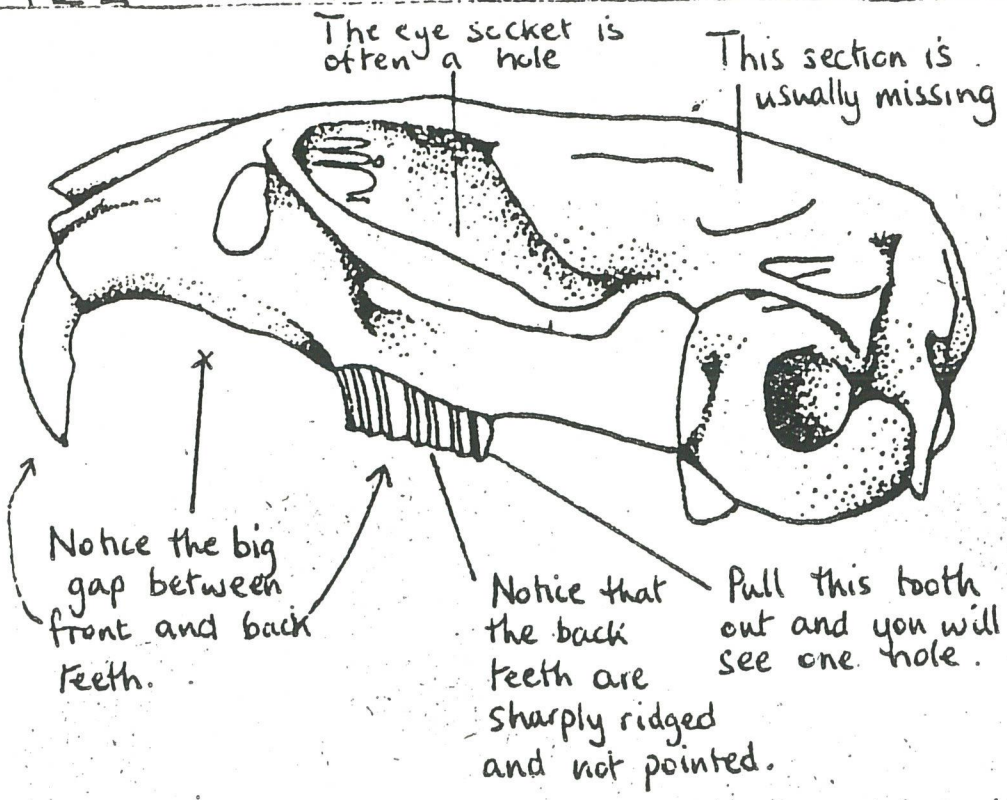 The eye socket is
often a hole
This section is
usually missing
Notice the big
gap between
front and back
teeth.
Notice that
the back
teeth are
sharply ridged
and not pointed.
Pull this tooth
out and you will
see one hole.